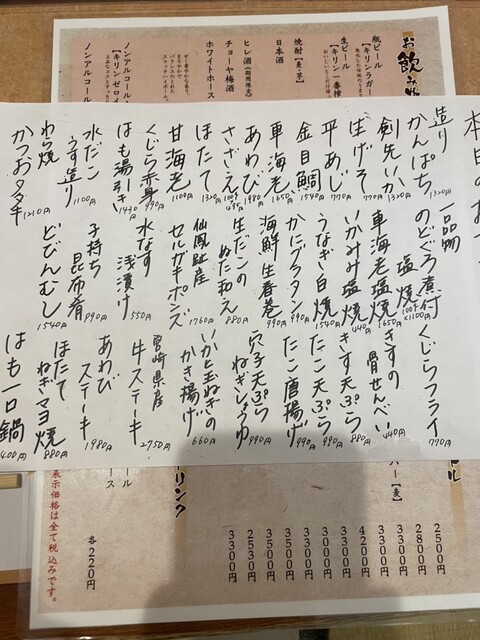 本日のお
造り
かんぱち 1320円
剣先いか 1320円
生げそ 770円
平あじ 770円
金目鯛 1540円
車海老 1650円
あわび 1980円
さざえ
ほたて 1320円
甘海老 1100円
くじら赤身 990円
はも湯引き 1430円
水だこ
うす造り 1100円
わら焼
かつおタタキ 1210円
一品物
のどぐろ煮付
塩焼 100g ×1100円
車海老塩焼 1650円
いかみみ塩焼 440円
うなぎ白焼 1540円
かにグラタン 990円
海鮮生春巻 990円
生だこの
ぬた和え 880円
仙鳳趾産
セルガキポンズ 1760円
水なす
浅漬け 550円
子持ち
昆布肴 990円
どびんむし 1540円
くじらフライ 770円
きすの
骨せんべい 440円
きす天ぷら 990円
たこ天ぷら 990円
たこ唐揚げ 990円
穴子天ぷら
ねぎしょうゆ 990円
いかと玉ねぎの
かき揚げ 660円
宮崎県産
牛ステーキ 2750円
あわび
ステーキ 1980円
ほたて
ねぎマヨ焼 880円
はも一口鍋
400円
お飲み
瓶ビール
【キリンラガー
生ビール
【キリン一番搾
焼酎【麦・芋】
日本酒
ヒレ酒(期間限定)
チョーヤ梅酒
ホワイトホース
ノンアルコール
【キリンゼロイ
ノンアルコール
ール
バー【麦】
2500円
2800円
3300円
3300円
4200円
3300円
3300円
3500円
3500円
2530円
3300円
リンク
ール
ース
各220円
表示価格は全て税込みです。